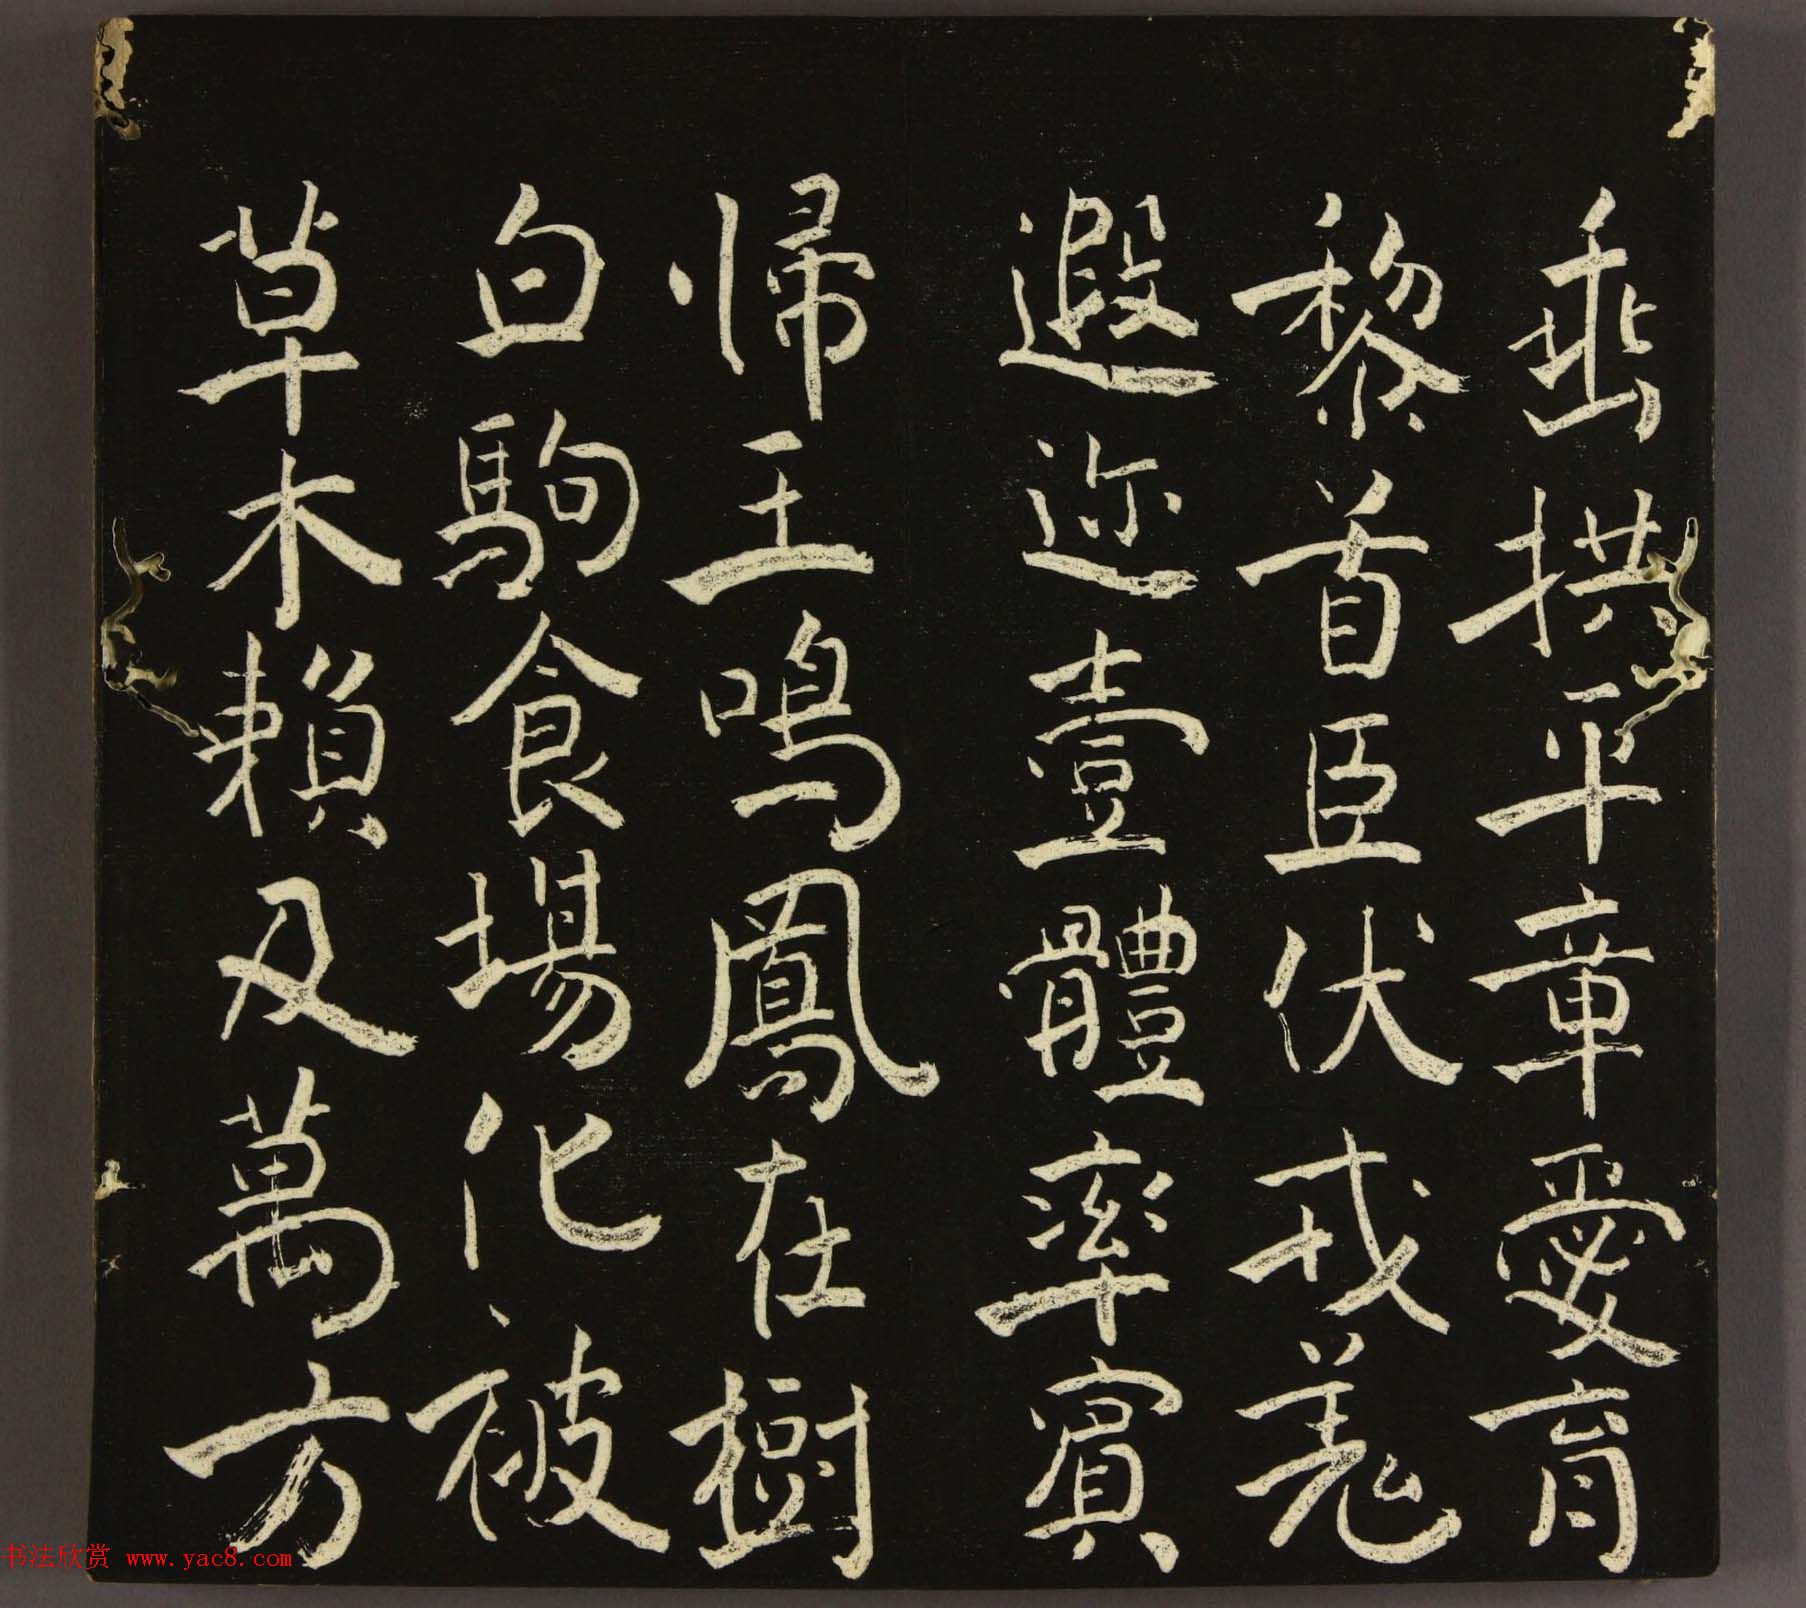 垂拱平章愛育
黎首臣伏戎羌
遐迩壹體率賓
歸王鳴鳳在樹
白駒食場化被
草木賴及萬方
书法欣赏 www.yac8.com